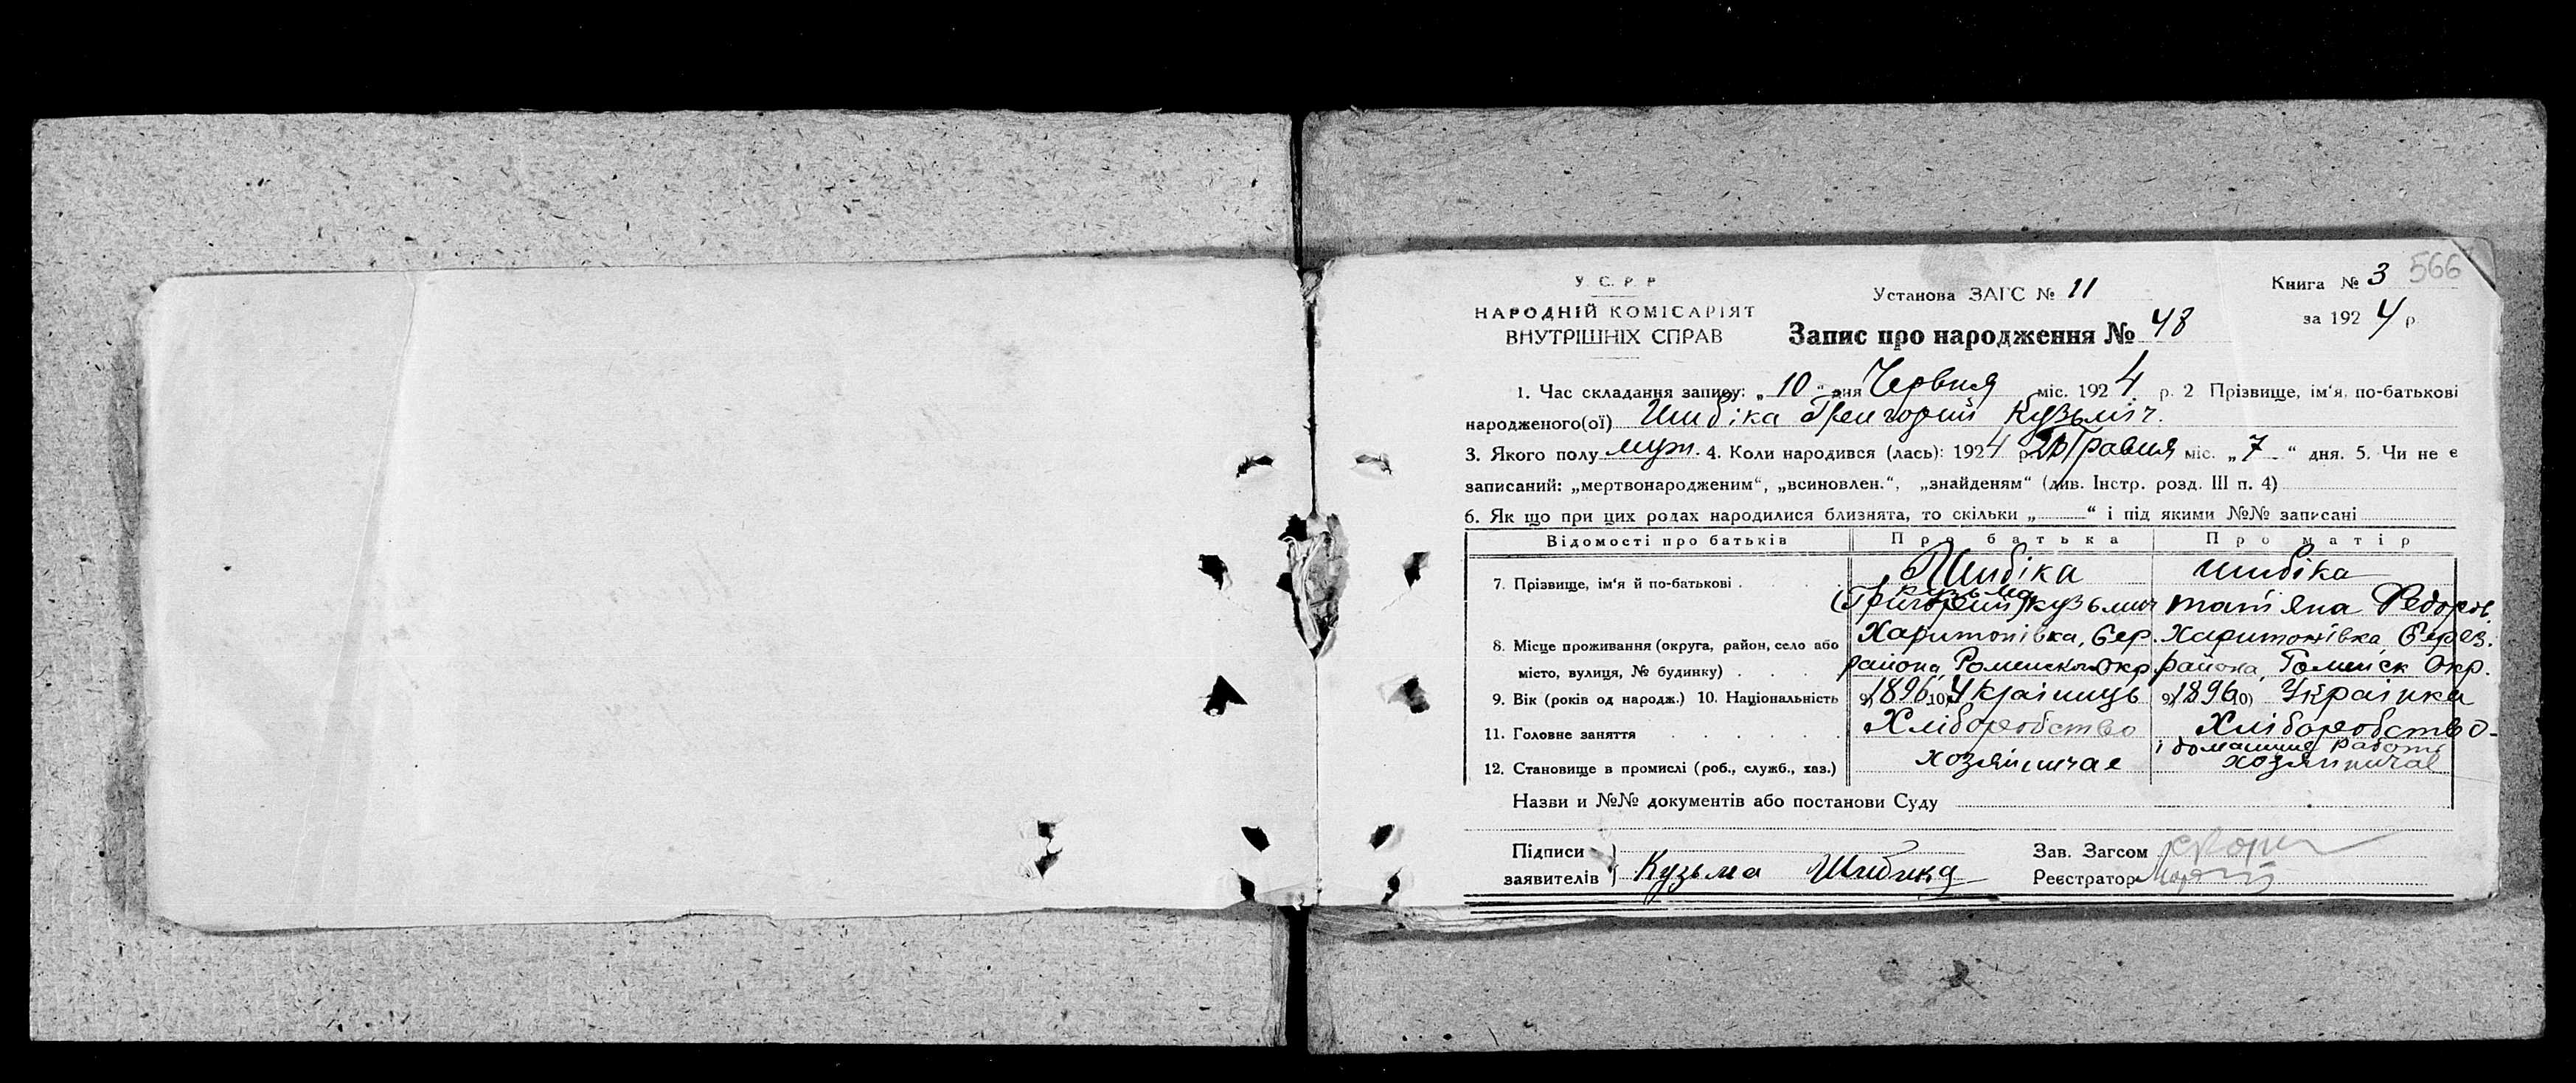 566
У. С. Р. Р
НАРОДНІЙ КОМІСАРІЯТ
ВНУТРІШНІХ СПРАВ
Установа ЗАГС № 11
Книга № 3
за 1924 р.
Запис про народження № 48
1. Час складання запису: „10“ дня Червня міс. 1924 р. 2 Прізвище, ім‘я, по-батькові
народженого(ої) Шибіка Григорий Кузьміч.
3. Якого полу муж. 4. Коли народився (лась): 1924 р. Травня міс. „7“ дня. 5. Чи не є
записаний: „мертвонародженим“, „всиновлен.“, „знайденям“ (див. Інстр. розд. III п. 4)
6. Як що при цих родах народилися близнята, то скільки „ “ і під якими №№ записані
Відомості про батьків Про батька Про матір
7. Прізвище, ім‘я й по-батькові Шибіка Шибіка
Кузьма
(Григорий) Кузьмич Татʼяна Федоров.
8. Місце проживання (округа, район, село або Харитонівка, Бер. Харитонівка, Берез.
місто, вулиця, № будинку) района, Роменской Окр района, Роменск Окр.
9. Вік (років од народж.) 10. Національність 9) 1896 10) Українць 9) 1896 10) Українка
11. Головне заняття Хліборобство Хліборобство
і домашние работи
12. Становище в промислі (роб., служб., хаз.) хозяйничае хозяйничае
Назви и №№ документів або постанови Суду
Підписи заявителів } Кузьма Шибика
Зав. Загсом
Реєстратор